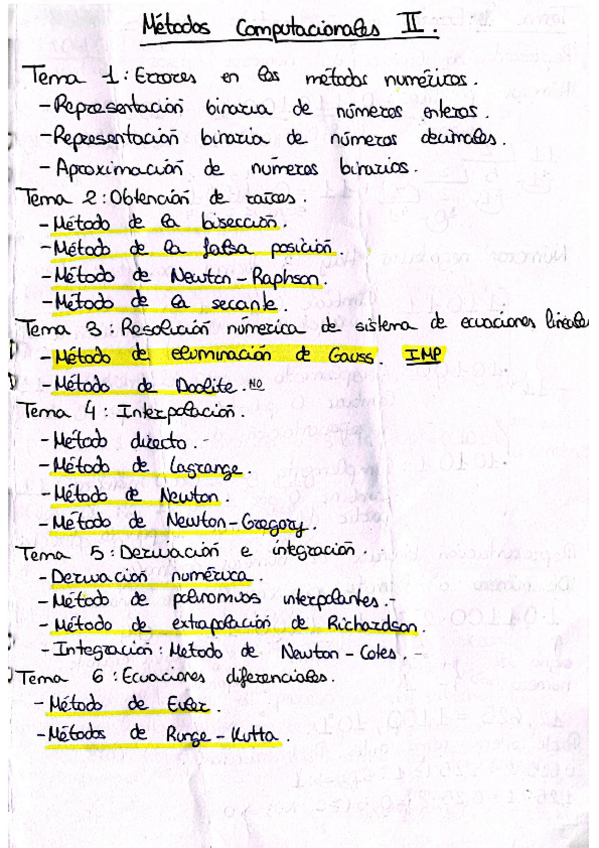 Métodos Computacionales II.
Tema 1: Errores en los métodos numéricos.
- Representación binaria de números enteros.
- Representación binaria de números decimales.
- Aproximación de números binarios.
Tema 2: Obtención de raíces.
- Método de la bisección.
- Método de la falsa posición.
- Método de Newton-Raphson.
- Método de la secante.
Tema 3: Resolución númerica de sistema de ecuaciones lineales
- Método de eliminación de Gauss. IMP
- Método de Doolite. NO
Tema 4: Interpolación.
- Método directo.-
- Método de Lagrange.
- Método de Newton.
- Método de Newton-Gregory.
Tema 5: Derivación e integración.
- Derivación numérica.
- Método de polinomios interpolantes.-
- Método de extrapolación de Richardson.
- Integración: Metodo de Newton-Cotes.-
Tema 6: Ecuaciones diferenciales.
- Método de Euler.
- Métodos de Runge-Kutta.